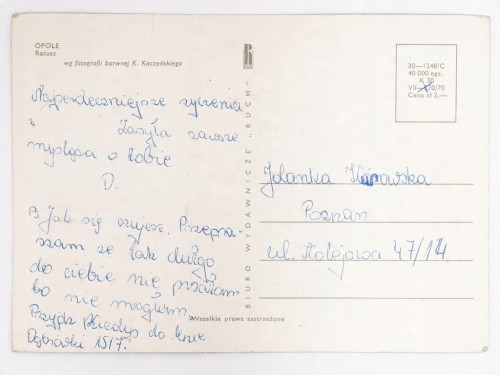 OPOLE
Ratusz
wg fotografii barwnej K. Kaczyńskiego
Najserdeczniejsze życzenia
Zasyła zawsze
myśląca o Tobie
D.
Jak się czujesz. Przepra
szam że tak długo
do ciebie nie pisałam
bo nie mogłam.
Przyjdź kiedyś do mnie
15/7.
BIURO WYDAWNICZE „RUCH"
R
30—1248/C
40 000 egz.
K 30
70/70
Cena zł 2,—
Jolanta
Poznań
ul. Kolejowa 47/14
Wszelkie prawa zastrzeżone